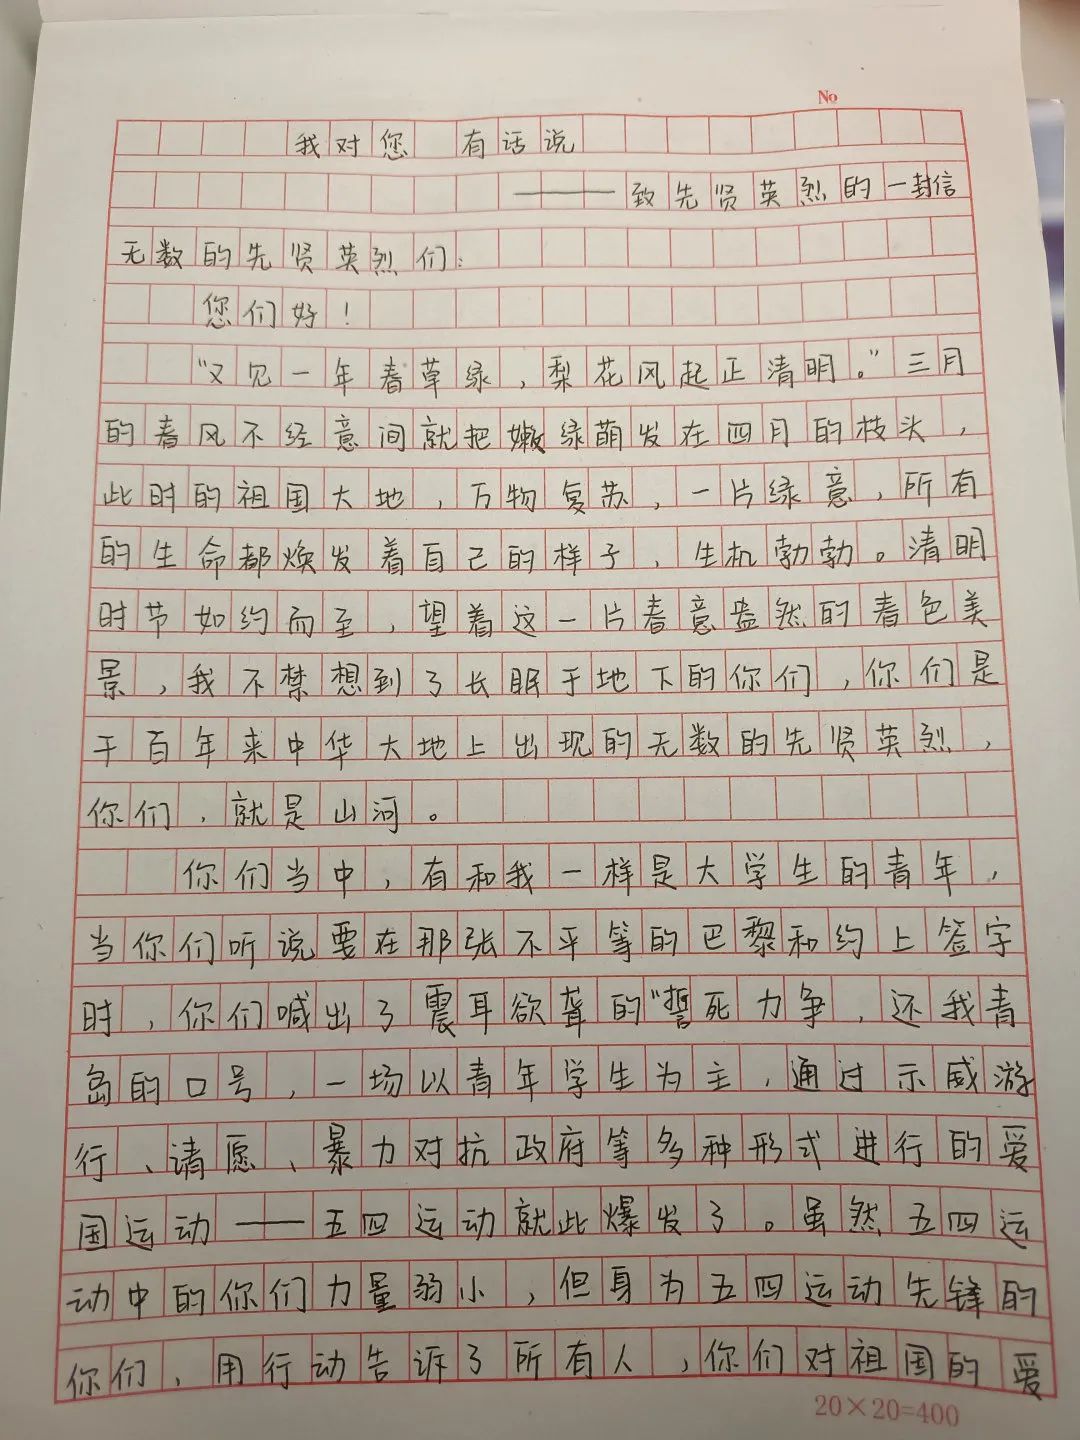 No
我对您 有话说
——致先贤英烈的一封信
无数的先贤英烈们:
您们好!
“又见一年春草绿,梨花风起正清明。”三月
的春风不经意间就把嫩绿萌发在四月的枝头,
此时的祖国大地,万物复苏,一片绿意,所有
的生命都焕发着自己的样子,生机勃勃。清明
时节如约而至,望着这一片春意盎然的春色美
景,我不禁想到了长眠于地下的你们,你们是
千百年来中华大地上出现的无数的先贤英烈,
你们,就是山河。
你们当中,有和我一样是大学生的青年,
当你们听说要在那张不平等的巴黎和约上签字
时,你们喊出了震耳欲聋的“誓死力争,还我青
岛的口号,一场以青年学生为主,通过示威游
行、请愿、暴力对抗政府等多种形式进行的爱
国运动——五四运动就此爆发了。虽然五四运
动中的你们力量弱小,但身为五四运动先锋的
你们,用行动告诉了所有人,你们对祖国的爱
20×20=400